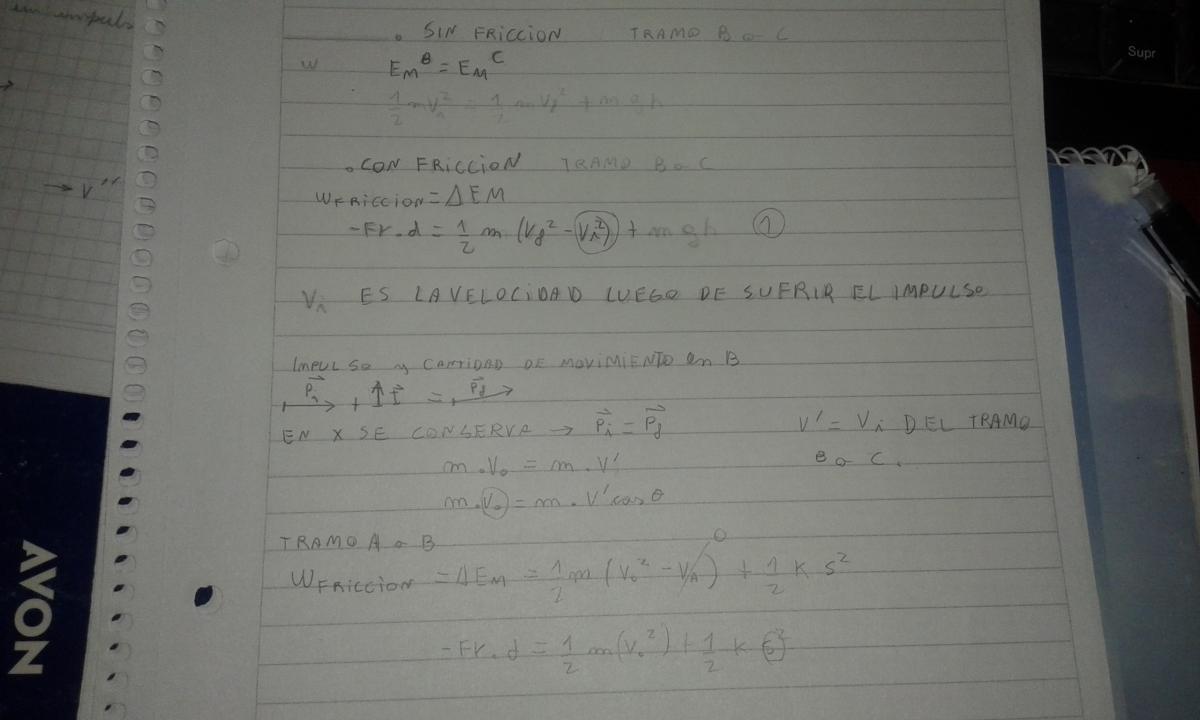 en impuls
→ V''
AVON
Supr
• SIN FRICCION TRAMO B a C
W
E_M^B = E_M^C
1/2 m V_i^2 = 1/2 m V_f^2 + m g h
• CON FRICCION TRAMO B a C
W_FRICCION = Δ EM
-Fr.d = 1/2 m (V_f^2 - V_i^2) + m g h ①
V_i ES LA VELOCIDAD LUEGO DE SUFRIR EL IMPULSO
IMPULSO y CANTIDAD DE MOVIMIENTO en B
P_i + I = P_f
EN X SE CONSERVA → P_i = P_f
V' = V_i DEL TRAMO
B a C.
m . V_0 = m . V'
m . V_0 = m . V' cos θ
TRAMO A a B
W_FRICCION = Δ E_M = 1/2 m (V_0^2 - V_A) + 1/2 K S^2
0
-Fr.d = 1/2 m (V_0^2) + 1/2 K S^2